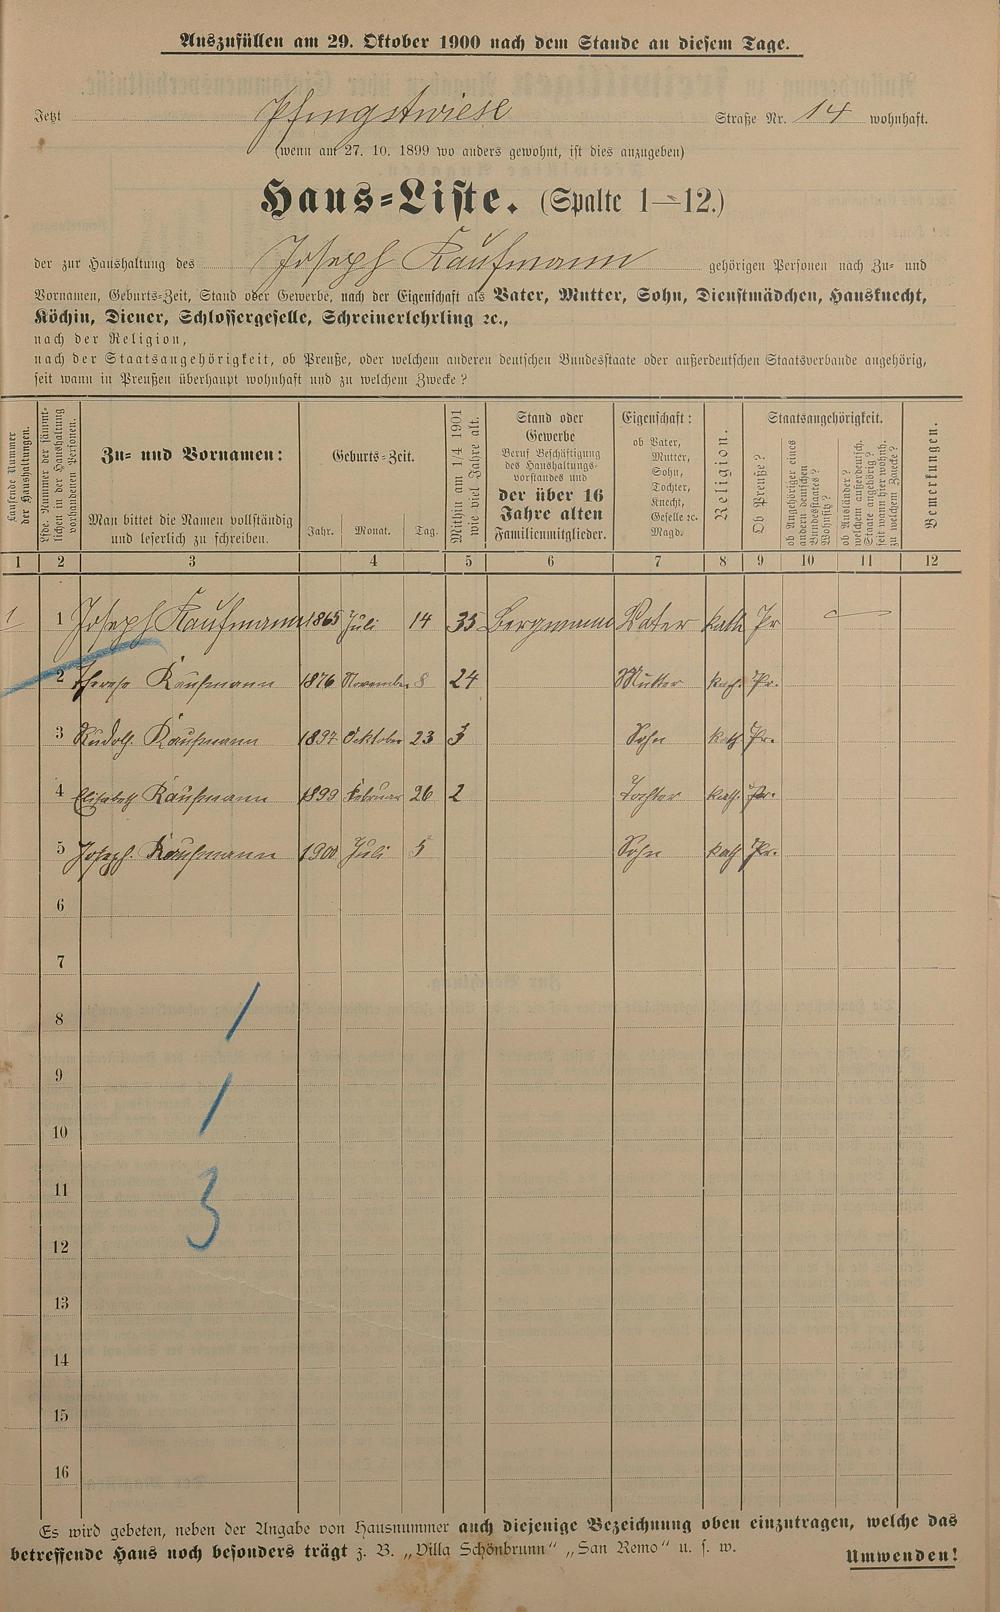 Auszufüllen am 29. Oktober 1900 nach dem Stande an diesem Tage.
Jetzt Pfingstwiese Straße Nr. 14 wohnhaft.
(wenn am 27. 10. 1899 wo anders gewohnt, ist dies anzugeben)
Haus-Liste. (Spalte 1—12.)
der zur Haushaltung des Joseph Kaufmann gehörigen Personen nach Zu- und
Vornamen, Geburts-Zeit, Stand oder Gewerbe, nach der Eigenschaft als Vater, Mutter, Sohn, Dienstmädchen, Hausknecht,
Köchin, Diener, Schlossergeselle, Schreinerlehrling ꝛc.,
nach der Religion,
nach der Staatsangehörigkeit, ob Preuße, oder welchem anderen deutschen Bundesstaate oder außerdeutschen Staatsverbande angehörig,
seit wann in Preußen überhaupt wohnhaft und zu welchem Zwecke?
Laufende Nummer
der Haushaltungen.
Lfde. Nummer der sämmt-
lichen in der Haushaltung
vorhandenen Personen.
Zu- und Vornamen:
Man bittet die Namen vollständig
und leserlich zu schreiben.
Geburts-Zeit.
Jahr. Monat. Tag.
Mithin am 1/4 1901
wie viel Jahre alt.
Stand oder
Gewerbe
Beruf Beschäftigung
des Haushaltungs-
vorstandes und
der über 16
Jahre alten
Familienmitglieder.
Eigenschaft:
ob Vater,
Mutter,
Sohn,
Tochter,
Knecht,
Geselle ꝛc.
Magd.
Religion.
Staatsangehörigkeit.
Ob Preuße?
ob Angehöriger eines
andern deutschen
Bundesstaates?
Wohnitz?
ob Ausländer?
welchem außerdeutsch.
Staate angehörig?
seit wann hier wohnh.
zu welchem Zwecke?
Bemerkungen.
1 2 3 4 5 6 7 8 9 10 11 12
1 1 Joseph Kaufmann 1865 Juli 14 35 Bergmann Vater kath Pr
2 Therese Kaufmann 1876 November 8 24 Mutter kath. Pr.
3 Rudolf. Kaufmann 1897 Ocktober 23 3 Sohn kath Pr.
4 Elisabeth Kaufmann 1899 Februar 26 2 Tochter kath. Pr.
5 Joseph. Kaufmann 1900 Juli 5 Sohn kath Pr.
6
7
8
9
10
11
3
12
13
14
15
16
Es wird gebeten, neben der Angabe von Hausnummer auch diejenige Bezeichnung oben einzutragen, welche das
betreffende Haus noch besonders trägt z. B. „Villa Schönbrunn“ „San Remo“ u. s. w.
Umwenden!